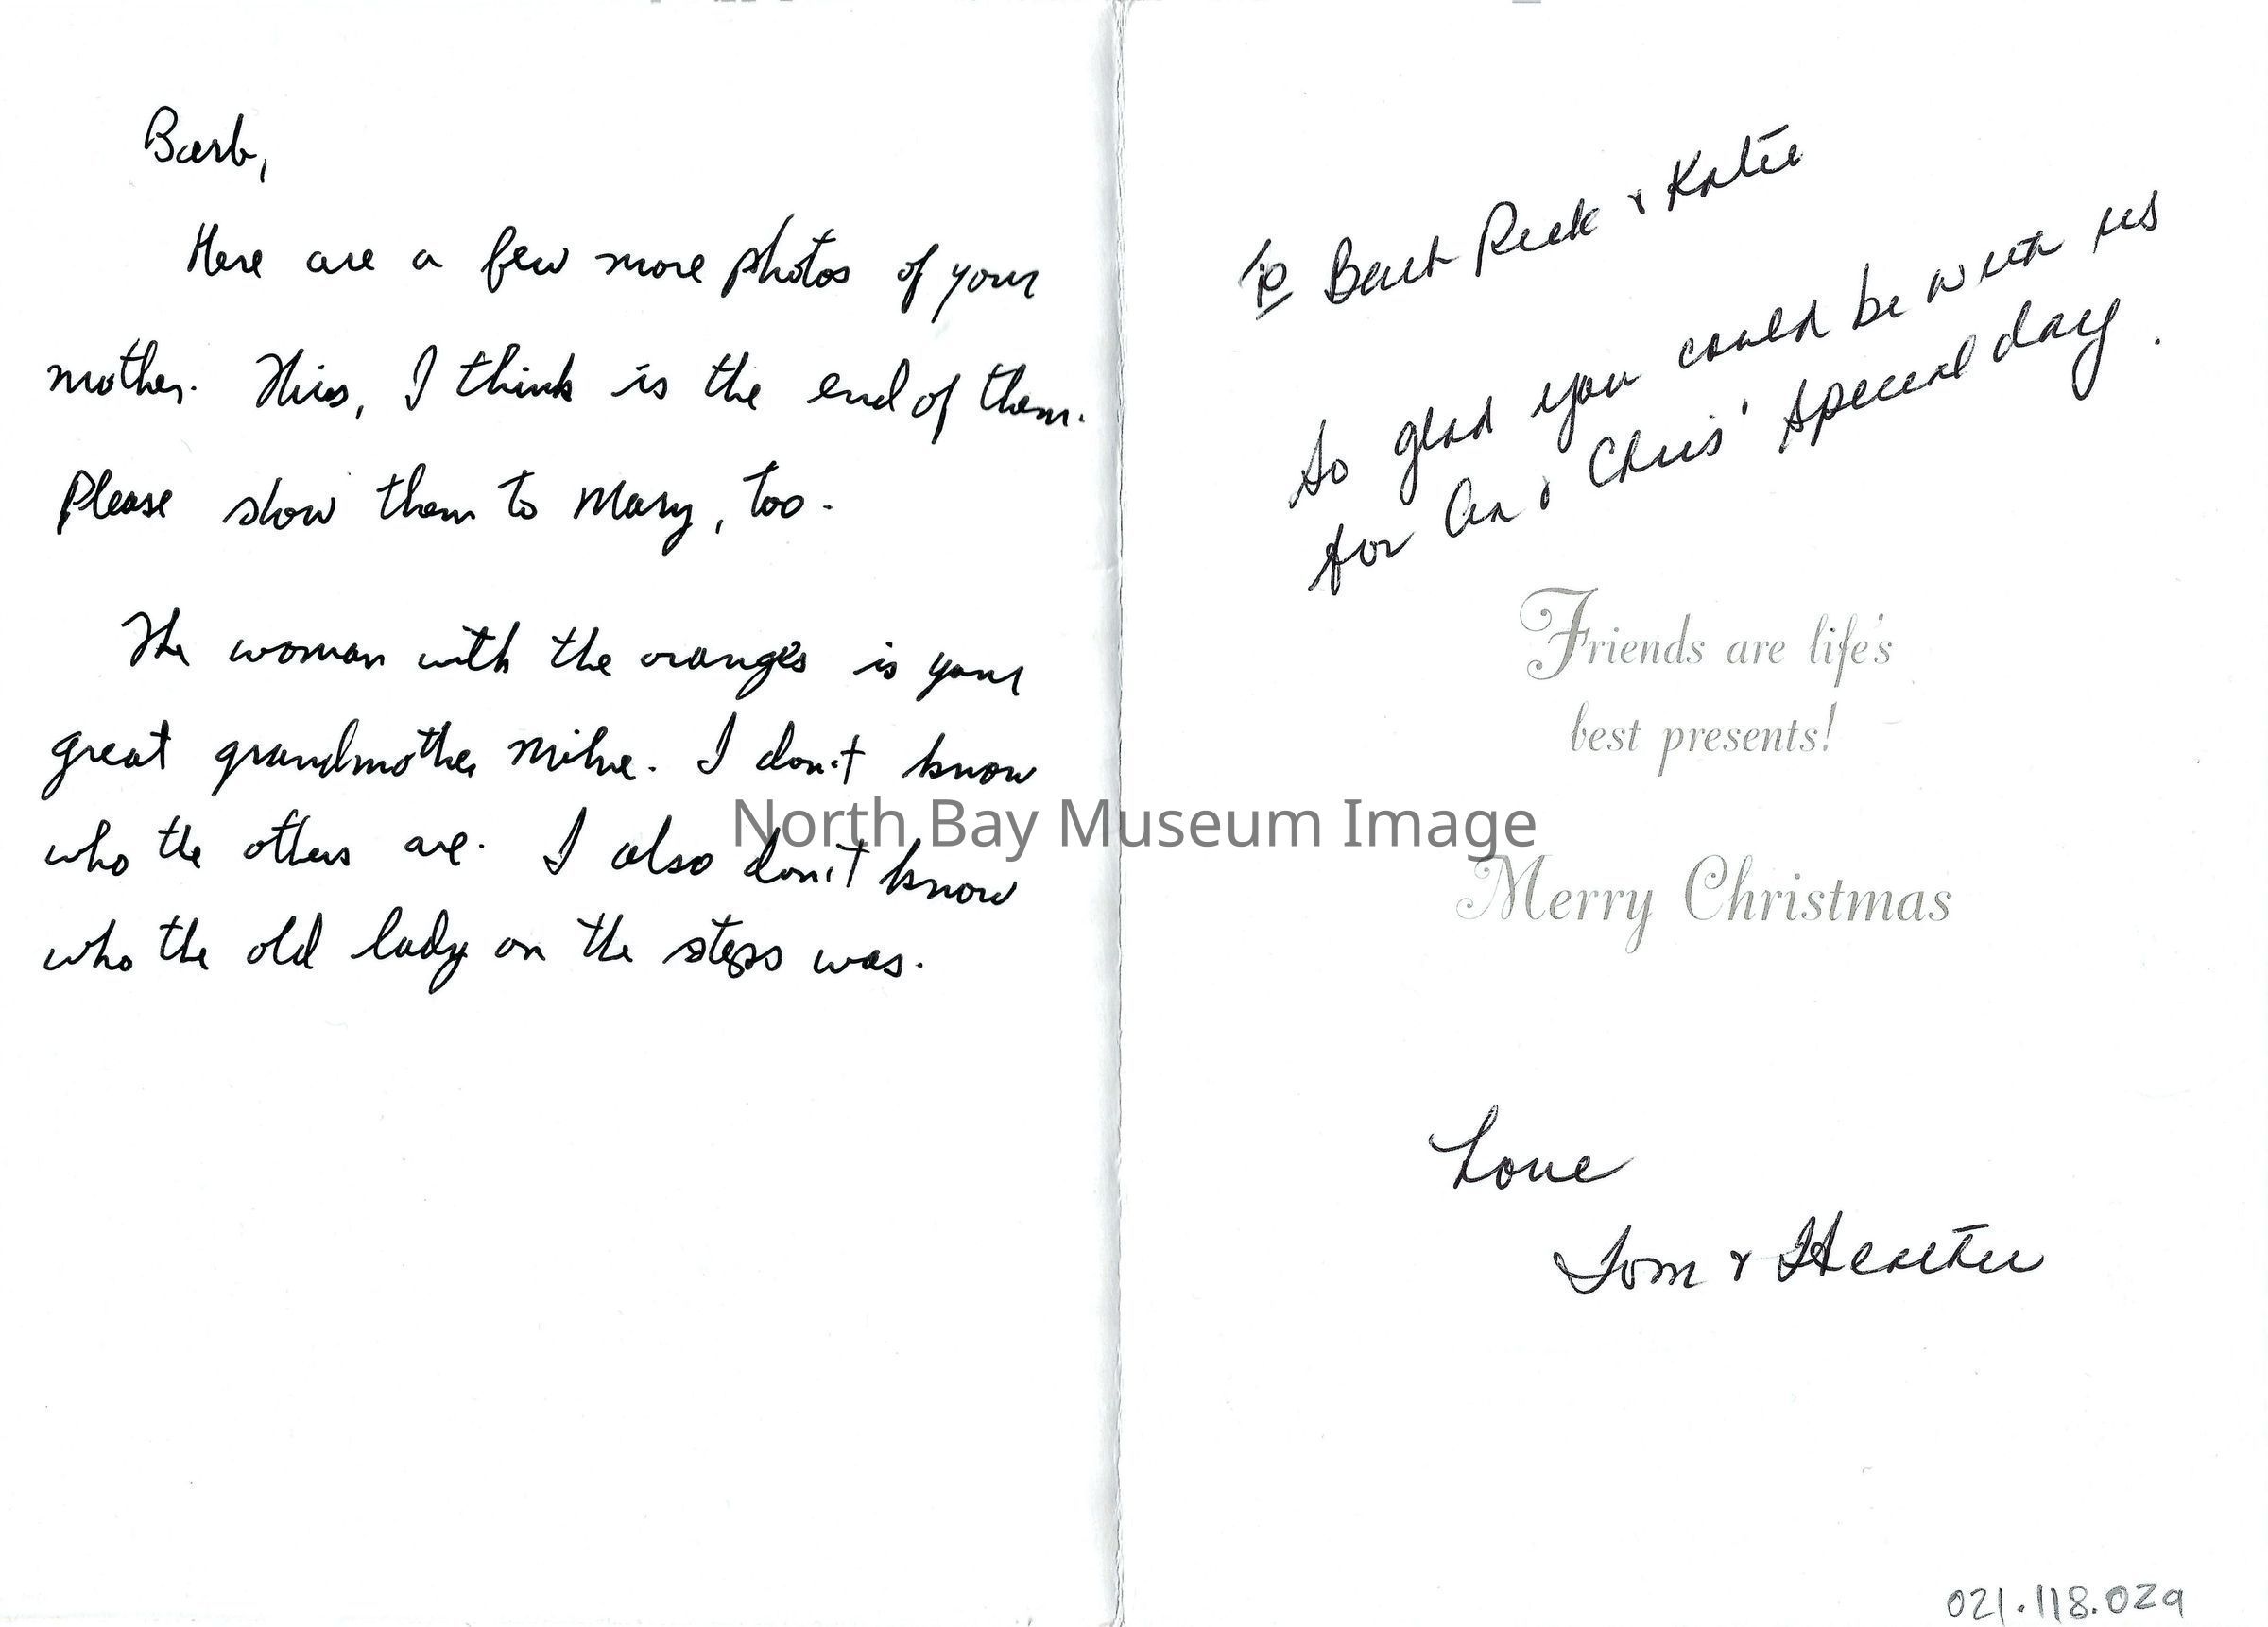 Barb,
Here are a few more photos of your
mother. This, I think is the end of them.
Please show them to Mary, too.
The woman with the oranges is your
great grandmother Milne. I don't know
who the others are. I also don't know
who the old lady on the steps was.
To Barb Rick & Katie
So glad you could be with us
for & Chris' special day.
Friends are life's
best presents!
Merry Christmas
Love
Tom & Heather
North Bay Museum Image
021.118.029